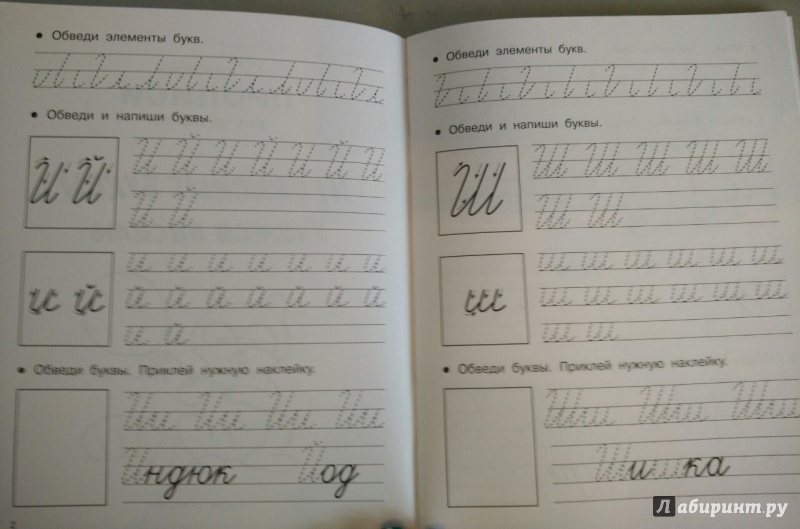 • Обведи элементы букв.
• Обведи и напиши буквы.
И Й
И Й И Й И Й И
И Й
и й
и и и и и и и
й й й й й й й
и й
• Обведи буквы. Приклей нужную наклейку.
Ии Ии Ии Ии
Индюк Йод
2
• Обведи элементы букв.
• Обведи и напиши буквы.
Ш
Ш Ш Ш Ш Ш
Ш Ш
ш
ш ш ш ш ш ш
ш ш ш ш ш ш
ш ш
• Обведи буквы. Приклей нужную наклейку.
Шш Шш Шш
Шишка
Лабиринт.ру